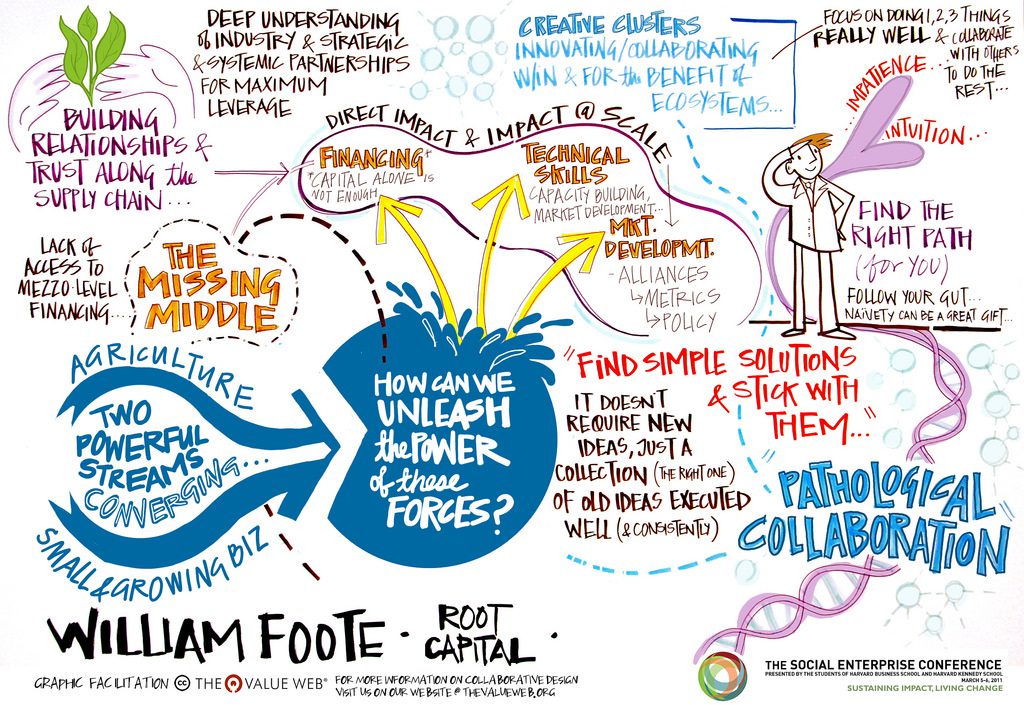 DEEP UNDERSTANDING
of INDUSTRY & STRATEGIC
& SYSTEMIC PARTNERSHIPS
FOR MAXIMUM
LEVERAGE
CREATIVE CLUSTERS
INNOVATING/COLLABORATING
W/IN & FOR the BENEFIT of
ECOSYSTEMS...
FOCUS ON DOING 1, 2, 3 THINGS
REALLY WELL & COLLABORATE
WITH OTHERS
TO DO THE
REST...
IMPATIENCE...
INTUITION...
BUILDING
RELATIONSHIPS &
TRUST ALONG the
SUPPLY CHAIN...
DIRECT IMPACT & IMPACT @ SCALE
FINANCING*
*CAPITAL ALONE IS
NOT ENOUGH
TECHNICAL
SKILLS
CAPACITY BUILDING,
MARKET DEVELOPMENT...
MKT.
DEVELOPMT.
- ALLIANCES
↳METRICS
↳POLICY
FIND THE
RIGHT PATH
(for YOU)
FOLLOW YOUR GUT...
NAÏVETY CAN BE A GREAT GIFT...
LACK of
ACCESS TO
MEZZO-LEVEL
FINANCING...
THE
MISSING
MIDDLE
AGRICULTURE
TWO
POWERFUL
STREAMS
CONVERGING...
SMALL & GROWING BIZ
HOW CAN WE
UNLEASH
the POWER
of these
FORCES?
"FIND SIMPLE SOLUTIONS
& STICK WITH
THEM..."
IT DOESN'T
REQUIRE NEW
IDEAS, JUST A
COLLECTION (THE RIGHT ONE)
OF OLD IDEAS EXECUTED
WELL (& CONSISTENTLY)
PATHOLOGICAL
COLLABORATION
WILLIAM FOOTE · ROOT
CAPITAL ·
GRAPHIC FACILITATION cc THE VALUE WEB®
FOR MORE INFORMATION ON COLLABORATIVE DESIGN
VISIT US ON OUR WEBSITE @ THEVALUEWEB.ORG
THE SOCIAL ENTERPRISE CONFERENCE
PRESENTED BY THE STUDENTS OF HARVARD BUSINESS SCHOOL AND HARVARD KENNEDY SCHOOL
MARCH 5-6, 2011
SUSTAINING IMPACT, LIVING CHANGE